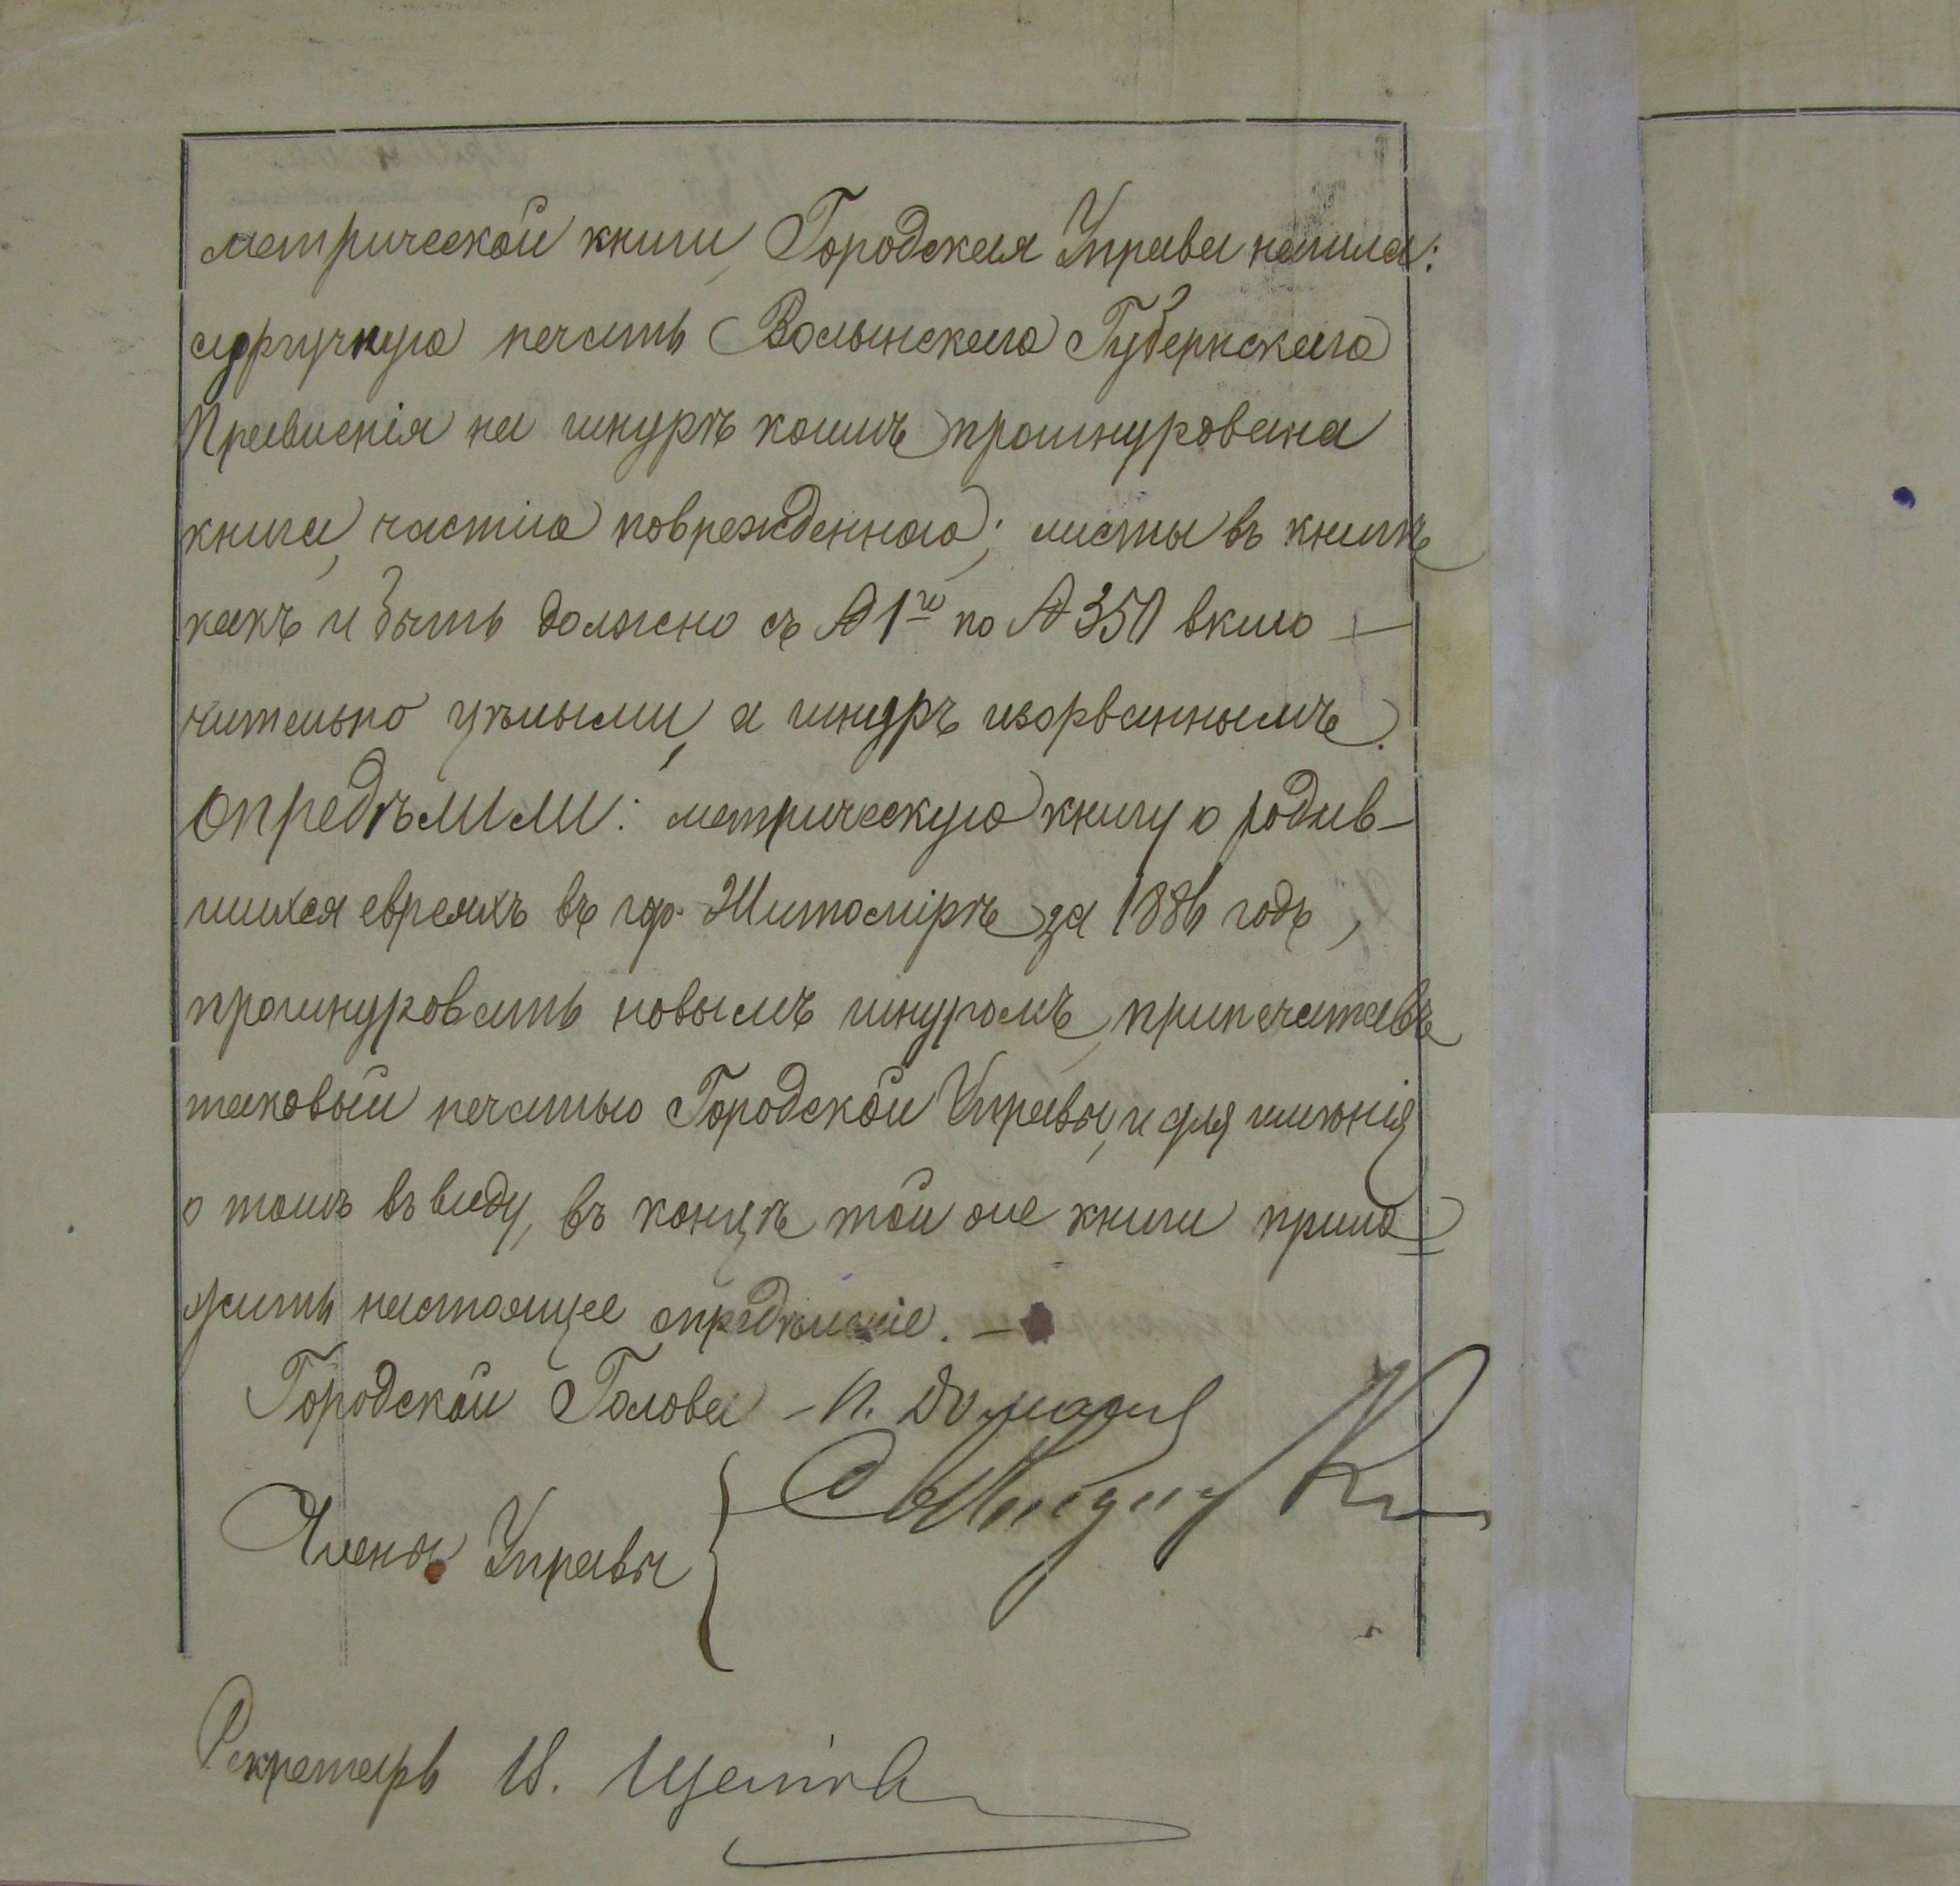 метрической книги, Городская Управа нашла:
сургучную печать Волынскаго Губернскаго
Правленія на шнурѣ коимъ прошнурована
книга, частію поврежденною; листы въ книгѣ
какъ и быть должно съ № 1го по № 350 вклю-
чительно цѣлыми, а шнуръ изорваннымъ.
Опредѣлили: метрическую книгу о родив-
шихся евреяхъ въ гор. Житомірѣ за 1886 годъ,
прошнуровать новымъ шнуромъ, припечатавъ
таковый печатью Городской Управы, и для имѣнія
о томъ въ виду, въ концѣ той же книги прило-
жить настоящее опредѣленіе. —
Городской Голова – И.
Члены Управы
Секретарь И.